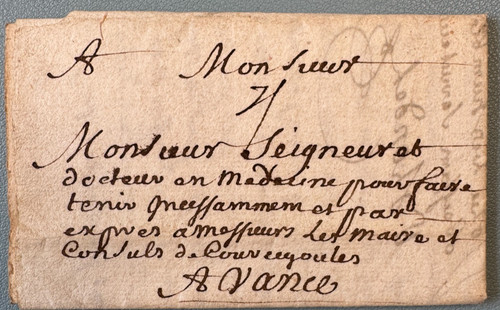 A Monsieur
Monsieur Seigneuret
docteur en Medecine pour faire
tenir Incessammem et par
expres a messieurs les maire et
Consuls de Courcegoules
A Vance